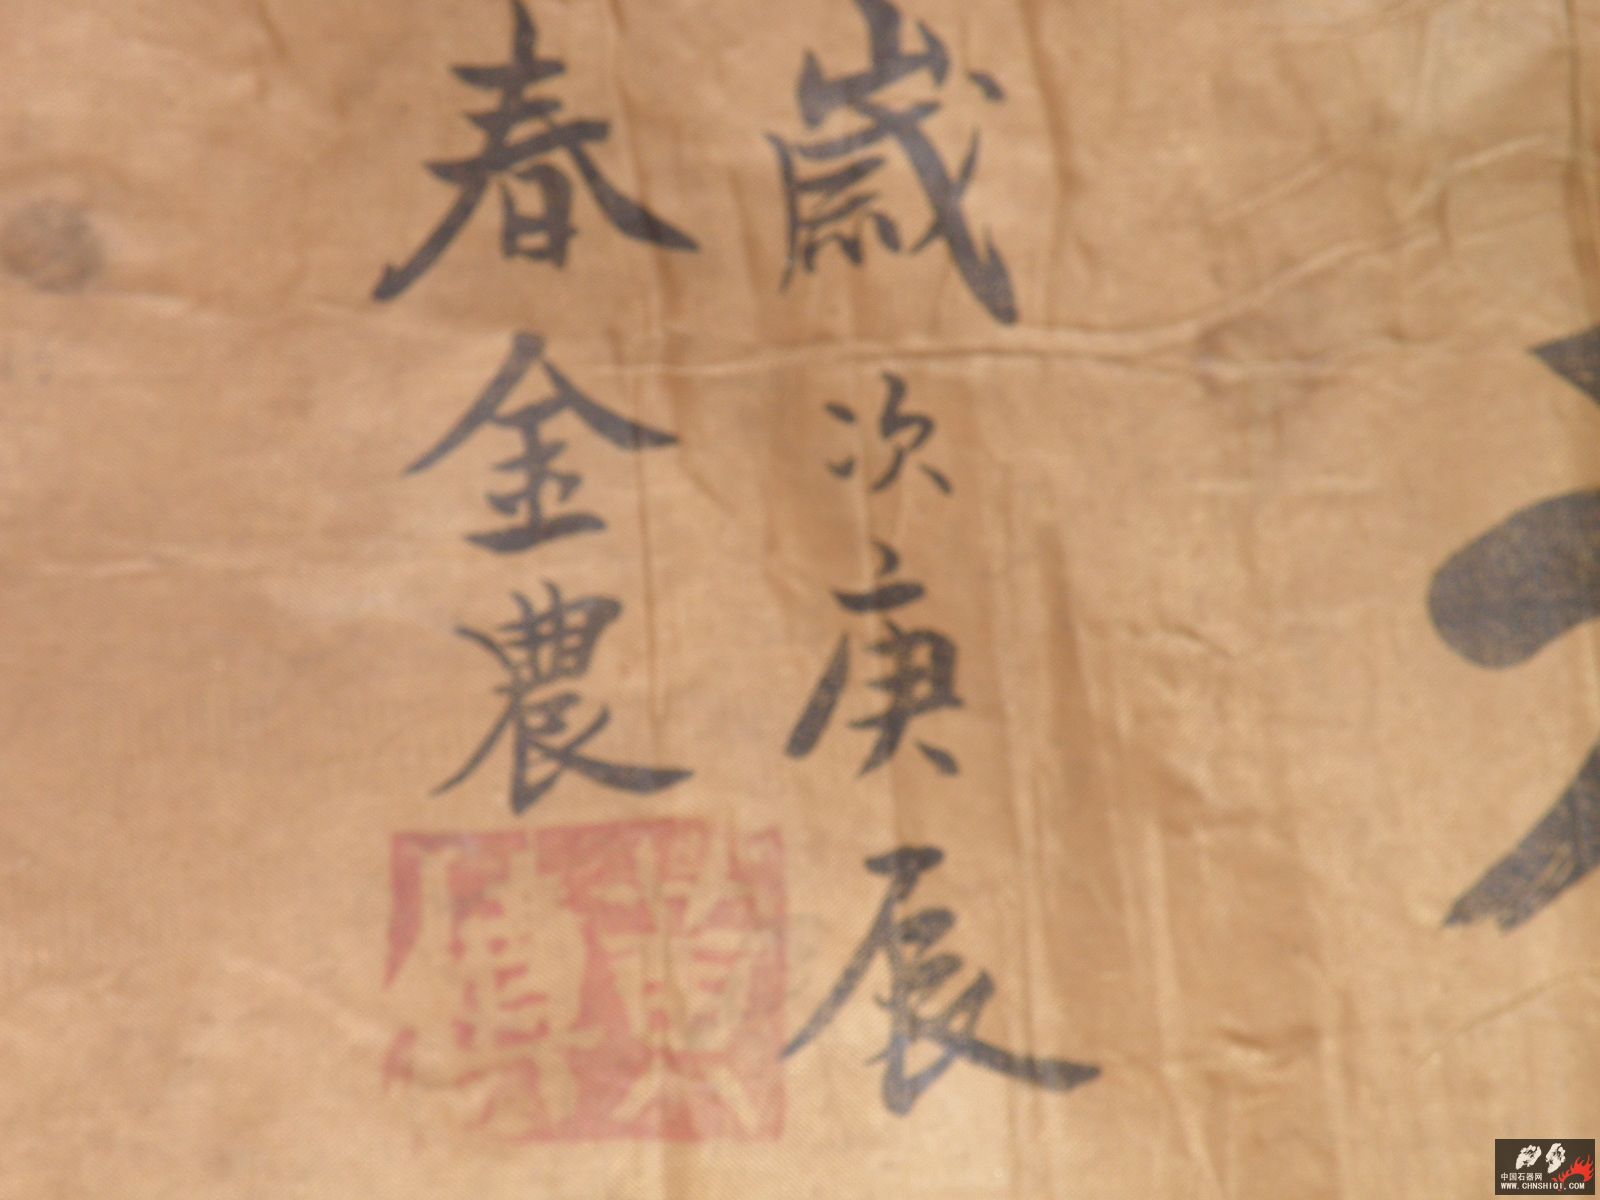 歲次庚辰
春金農
中国石器网
WWW.CHNSHIQI.COM